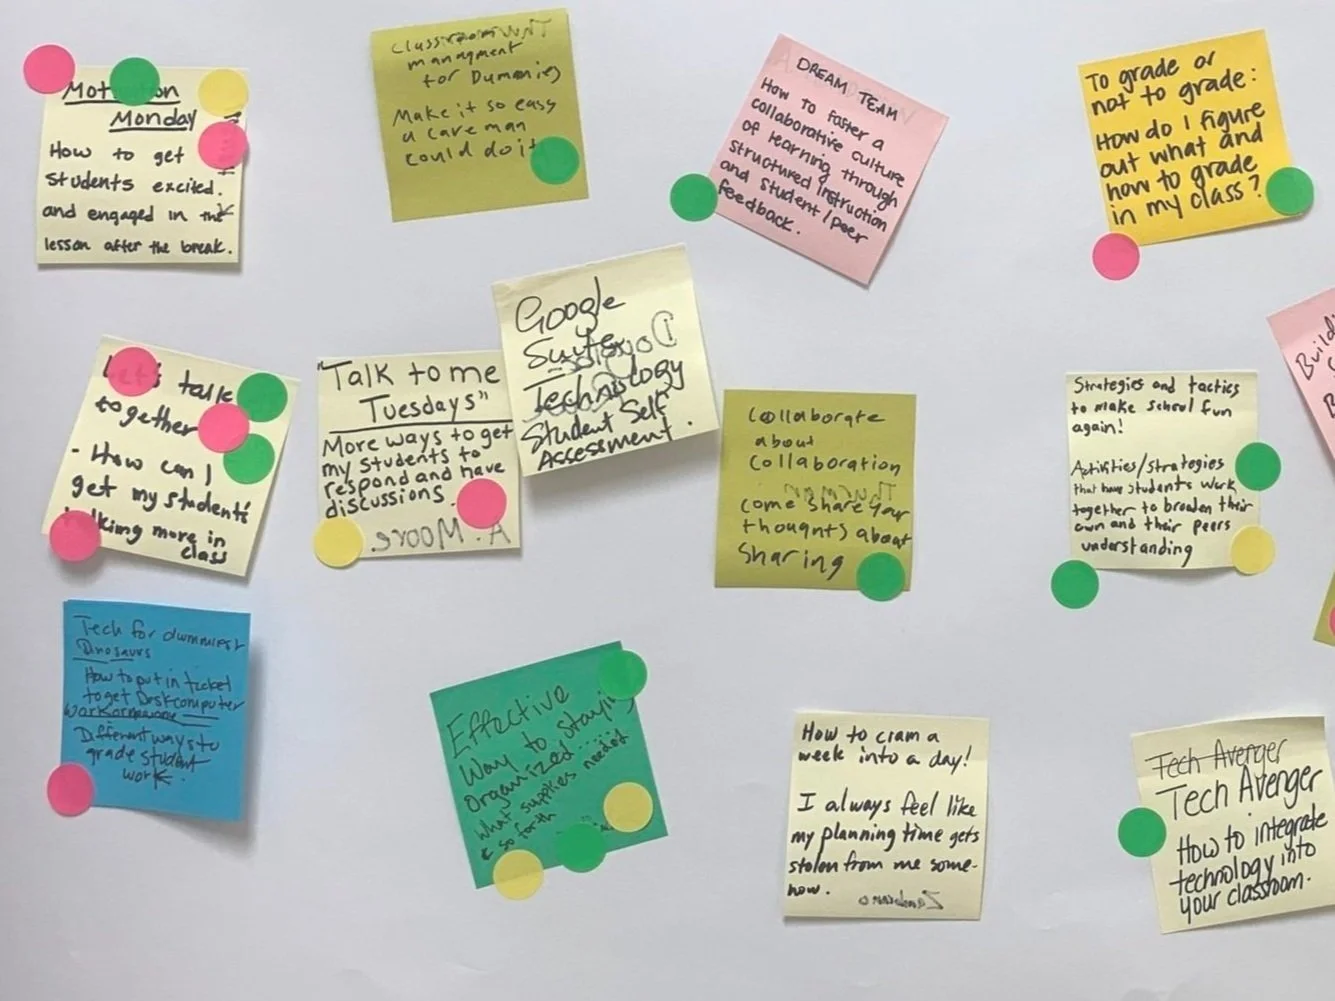 Motivation
Monday
How to get
students excited.
and engaged in the
lesson after the break.
Classroom
managment
for Dummies
Make it so easy
a caveman
could do it
DREAM TEAM
How to foster a
collaborative culture
of learning through
structured instruction
and student/peer
feedback.
To grade or
not to grade:
How do I figure
out what and
how to grade
in my class?
Let's talk
together
- How can I
get my students'
talking more in
class
"Talk to me
Tuesdays"
More ways to get
my students to
respond and have
discussions.
A. Moore
Google
Suite
Technology
Student Self
Assessment.
Collaborate
about
Collaboration
come share your
thoughts about
sharing
Strategies and tactics
to make school fun
again!
Activities/Strategies
that have students work
together to broaden their
own and their peers
understanding
Buildi
Tech for dummies
Dinosaurs
How to put in ticket
to get Desk computer
Different ways to
grade student
work.
Effective
Way to staying
organized......
what supplies needed
& so forth
How to cram a
week into a day!
I always feel like
my planning time gets
stolen from me some-
how.
Tech Avenger
Tech Avenger
How to integrate
technology into
your classroom.